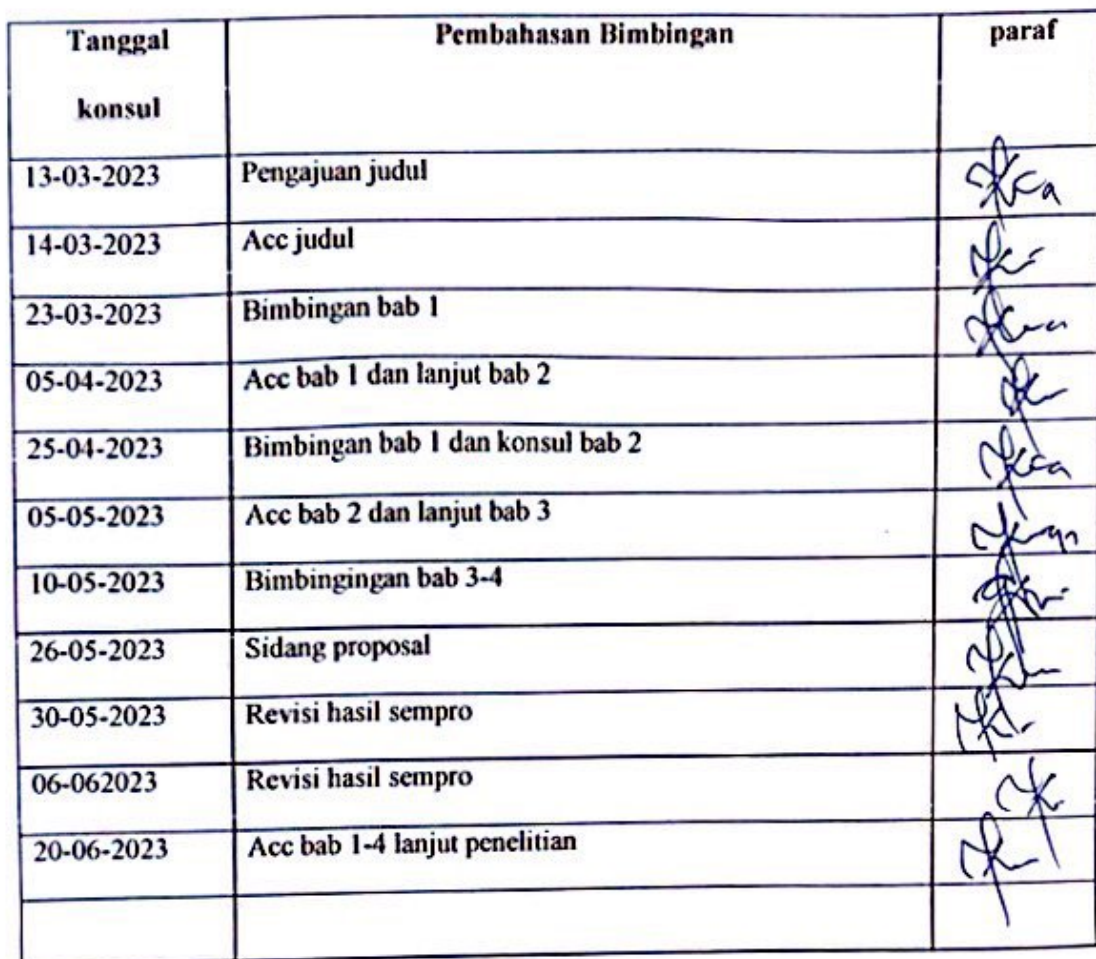 Tanggal konsul Pembahasan Bimbingan paraf
13-03-2023 Pengajuan judul
14-03-2023 Acc judul
23-03-2023 Bimbingan bab 1
05-04-2023 Acc bab 1 dan lanjut bab 2
25-04-2023 Bimbingan bab 1 dan konsul bab 2
05-05-2023 Acc bab 2 dan lanjut bab 3
10-05-2023 Bimbingingan bab 3-4
26-05-2023 Sidang proposal
30-05-2023 Revisi hasil sempro
06-062023 Revisi hasil sempro
20-06-2023 Acc bab 1-4 lanjut penelitian